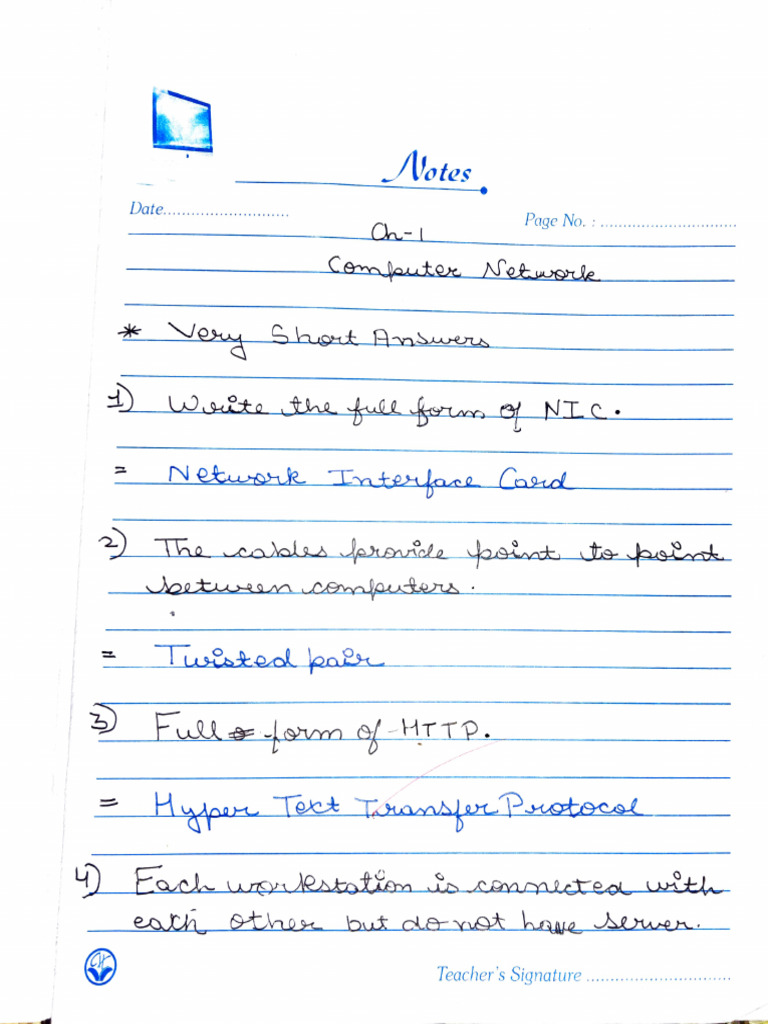 Notes
Date............................
Page No. : ..............................
Ch-1
Computer Network
* Very Short Answers
1) Write the full form of NIC.
= Network Interface Card
2) The cables provide point to point
between computers.
= Twisted pair
3) Full form of HTTP.
= Hyper Text Transfer Protocol
4) Each workstation is connected with
each other but do not have server.
Teacher's Signature ..............................